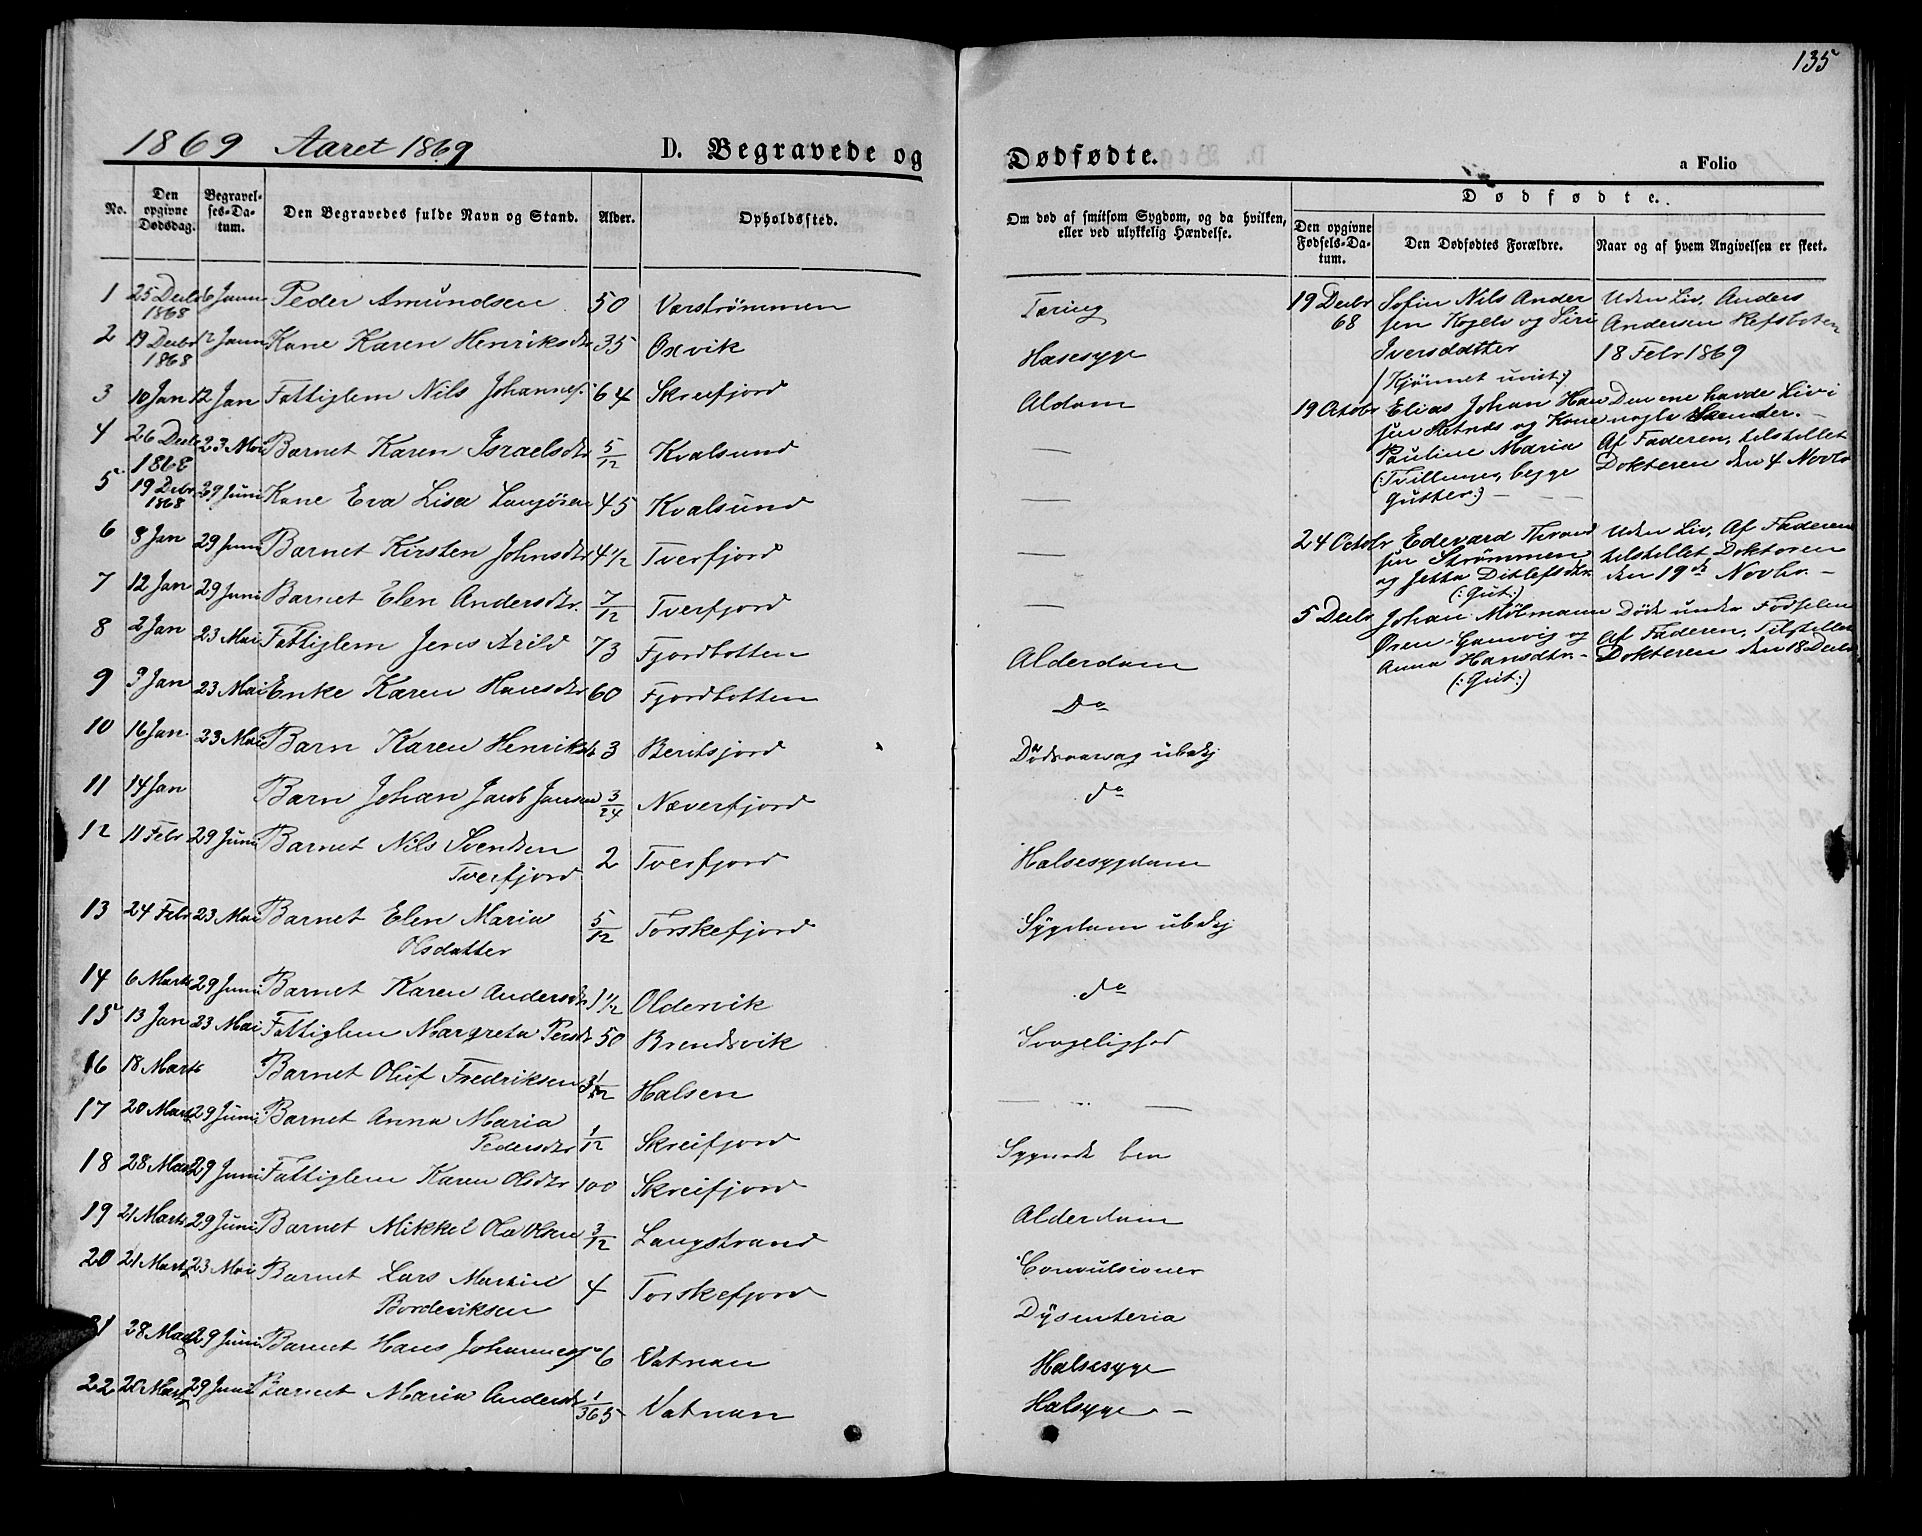 135
1869 Aaret 1869 D. Begravede og Dødfødte. a Folio
No. Den opgivne Dødsdag. Begravelses-Datum. Den Begravedes fulde Navn og Stand. Alder. Opholdssted.
Om død af smitsom Sygdom, og da hvilken, eller ved ulykkelig Hændelse.
Dødfødte.
Den opgivne Fødsels-Datum. Den Dødfødtes Forældre. Naar og af hvem Angivelsen er skeet.
1 25 Decbr 1868 6 Janu Peder Amundsen 50 Varstrømmen Tæring
2 19 Decbr 1868 12 Janu Kone Karen Henriksdtr 35 Oxvik Halsesyge
3 10 Jan 12 Jan Fattiglem Nils Johannes. 64 Skreifjord Aldom
4 26 Decbr 1868 23 Mai Barnet Karen Israelsdtr 5/12 Kvalsund —
5 19 Decbr 1868 29 Juni Kone Eva Lisa 45 Kvalsund —
6 3 Jan 29 Juni Barnet Kirsten Johnsdtr 4 1/2 Tverfjord —
7 12 Jan 29 Juni Barnet Elen Andersdtr. 7/12 Tverfjord —
8 2 Jan 23 Mai Fattiglem Jens Arild 73 Fjordbotten Alderdom
9 9 Jan 23 Mai Enke Karen Hansdtr 60 Fjordbotten Do
10 16 Jan 23 Mai Barn Karen Henriksdtr 3 Beritsjord Dødsaarsag ubekj
11 14 Jan Barn Johan Jacob Jansen 3/24 Næverfjord do
12 11 Febr 29 Juni Barnet Nils Svendsen
Tverfjord 2 Tverfjord Halsesygdom
13 24 Febr 23 Mai Barnet Elen Maria
Olsdatter 5/12 Torskefjord Sygdom ubekj
14 6 Marts 29 Juni Barnet Karen Andersdtr 1 1/2 Oldervik do
15 13 Jan 23 Mai Fattiglem Margreta Persdtr 50 Brendsvik Svagelighed
16 18 Marts Barnet Oluf Fredriksen 3 1/12 Halsen — —
17 20 Marts 29 Juni Barnet Anna Maria
Pedersdtr 1/12 Skreifjord ben
18 28 Marts 29 Juni Fattiglem Karen Olsdtr 100 Skreifjord Alderdom
19 21 Marts 29 Juni Barnet Mikkel Ola Olsen 3/12 Langstrand Convulsioner
20 21 Marts 23 Mai Barnet Lars Martin
Bordeviksen 4 Torskefjord Dysenteria
21 28 Marts 29 Juni Barnet Hans Johannes 6 Vatnan Halsesyge
22 20 Marts 29 Juni Barnet Maria Andersdtr 1/365 Vatnan Halsyge —
19 Decbr 68 Sofin Nils Ander
sen Kogelv og Siri
Iversdatter
(Kjønnet uvist:)
Uden Liv. Anders
Andersen Refsboten
18 Febr 1869
19 Octobr Elias Johan Han
sen og Kone
Pauline Maria
(:Tvillinger, begge
Gutter:) —
Den ene havde Liv i
nogle Secunder. —
Af Faderen, tilstillet
Dokteren den 4 Novbr
24 Octobr Edevard
sen Strømmen
og Jetta Ditlefsdtr.
(:Gut:)
Uden Liv, Af Faderen
tilstillet Doktoren
den 19de Novbr. —
5 Decbr Johan Mølmann
Øren Gamvig og
Anna Hansdtr. —
(:Gut:)
Døde under Fødselen
Af Faderen, Tilstillet
Dokteren den 18 Decbr